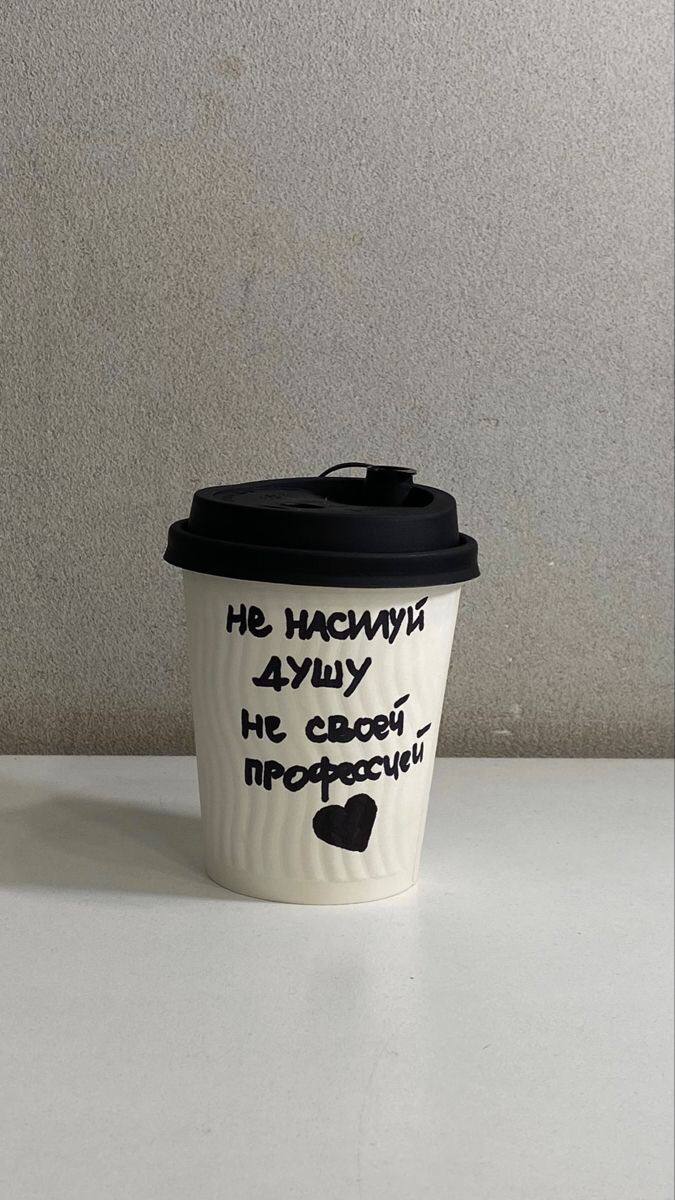 не насилуй
душу
не своей
профессией